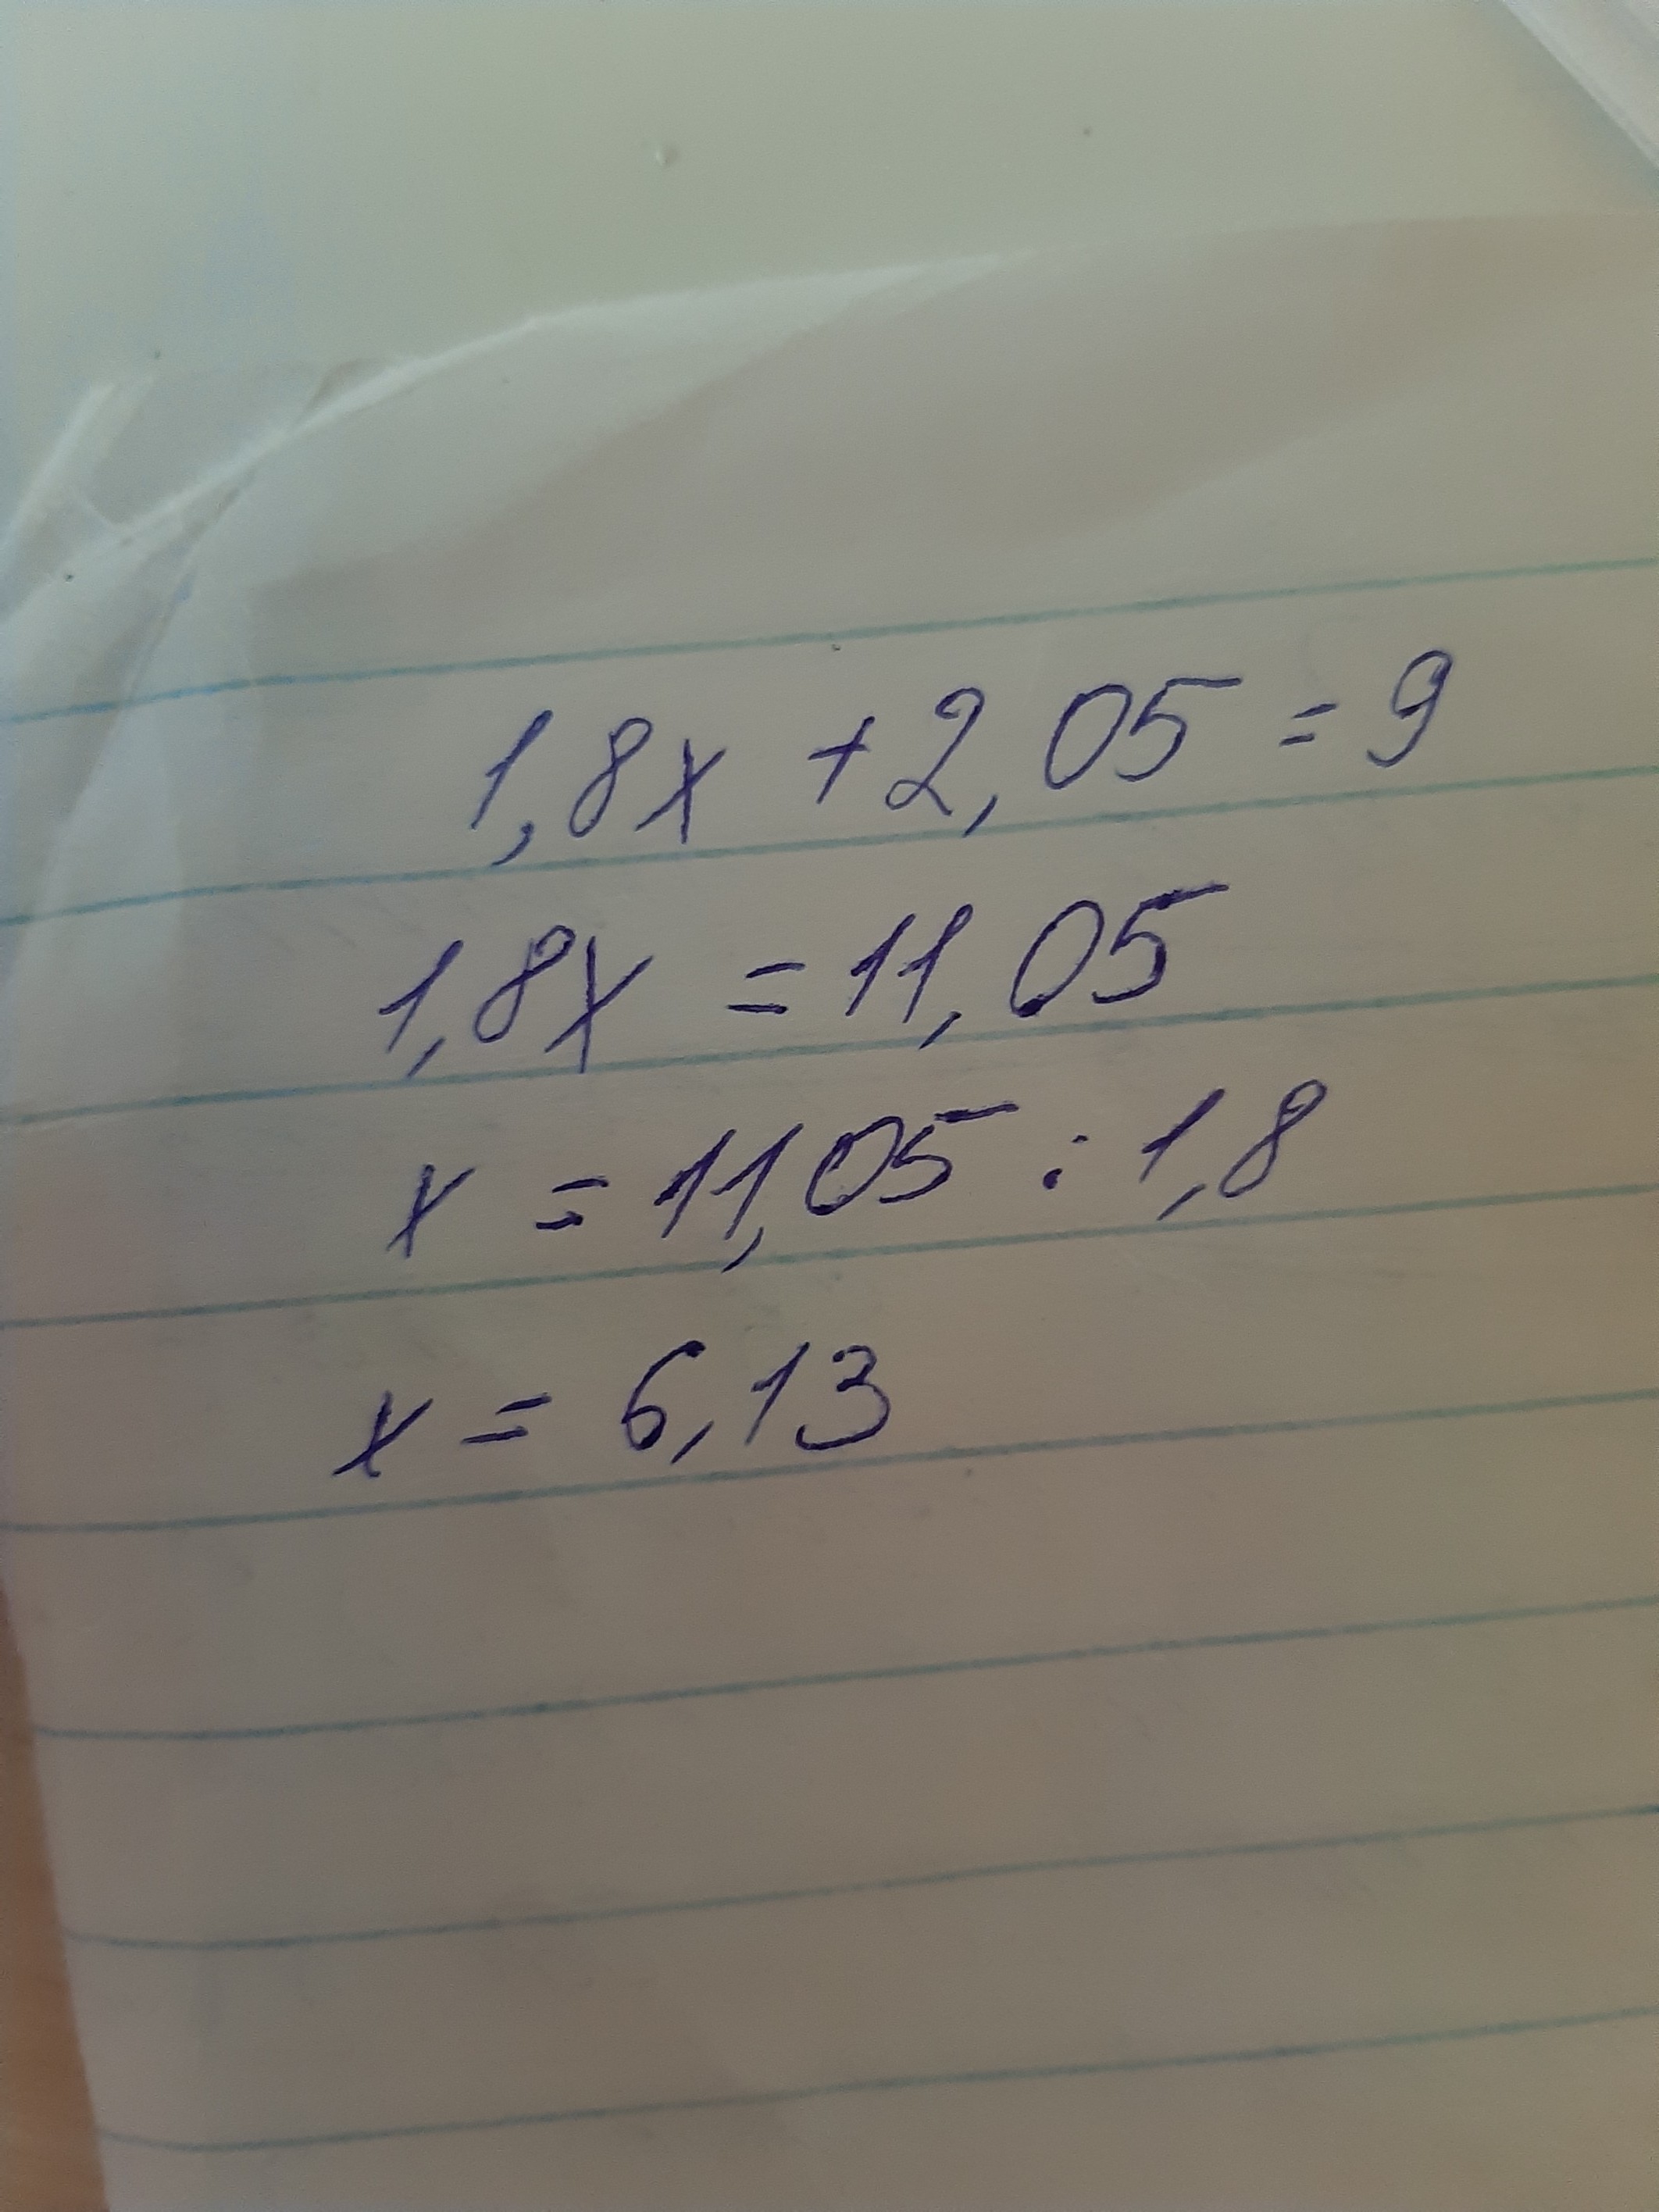 1,8x + 2,05 = 9
1,8x = 11,05
x = 11,05 : 1,8
x = 6,13